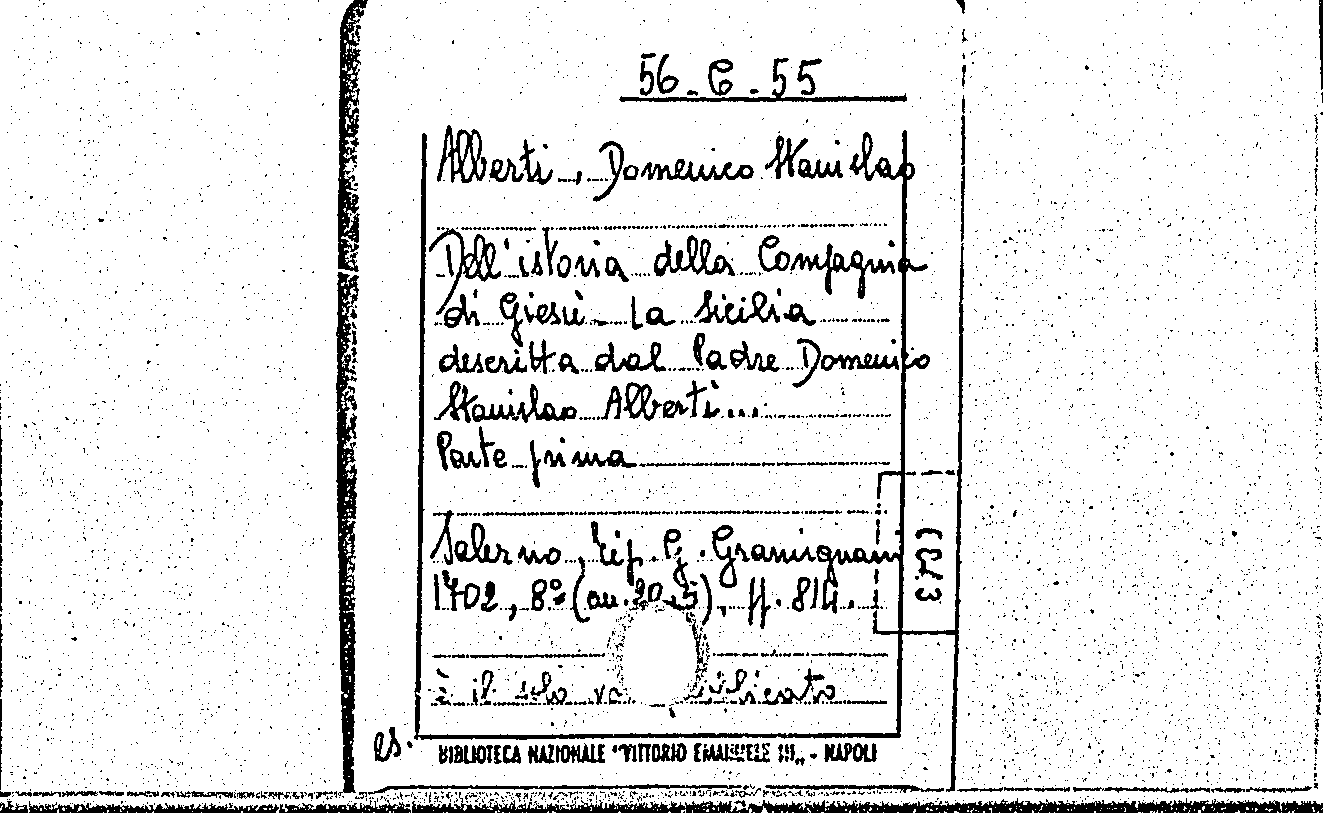 56-C-55
Alberti, Domenico Stanislao
Dell'istoria della Compagnia
di Giesù - La Sicilia
descritta dal Padre Domenico
Stanislao Alberti...
Parte prima
Salerno, Tip. G. Gramignani
1702, 8º (cm. 20,5), pp. 814.
è il solo
es.
BIBLIOTECA NAZIONALE "VITTORIO EMANUELE III„ - NAPOLI